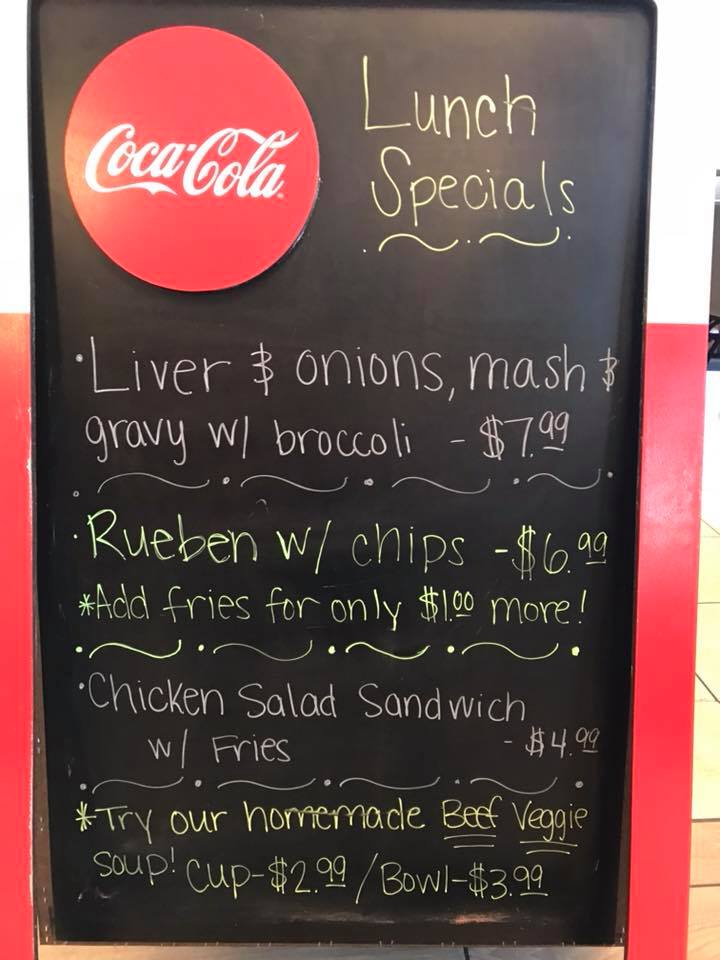 Coca-Cola
Lunch
Specials
·Liver & onions, mash &
gravy w/ broccoli - $7.99
·Rueben w/ chips - $6.99
*Add fries for only $1.00 more!
·Chicken Salad Sandwich
w/ Fries - $4.99
*Try our homemade Beef Veggie
soup! Cup-$2.99/Bowl-$3.99